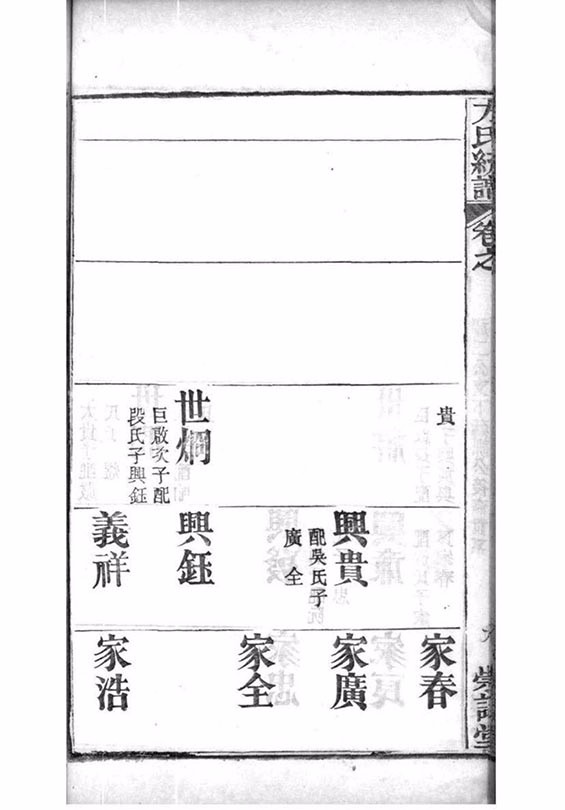 氏統譜
卷之
貴
世烱
巨啟次子配
段氏子興鈺
興貴
配吳氏子
廣全
興鈺
義祥
家春
家廣
家全
家浩